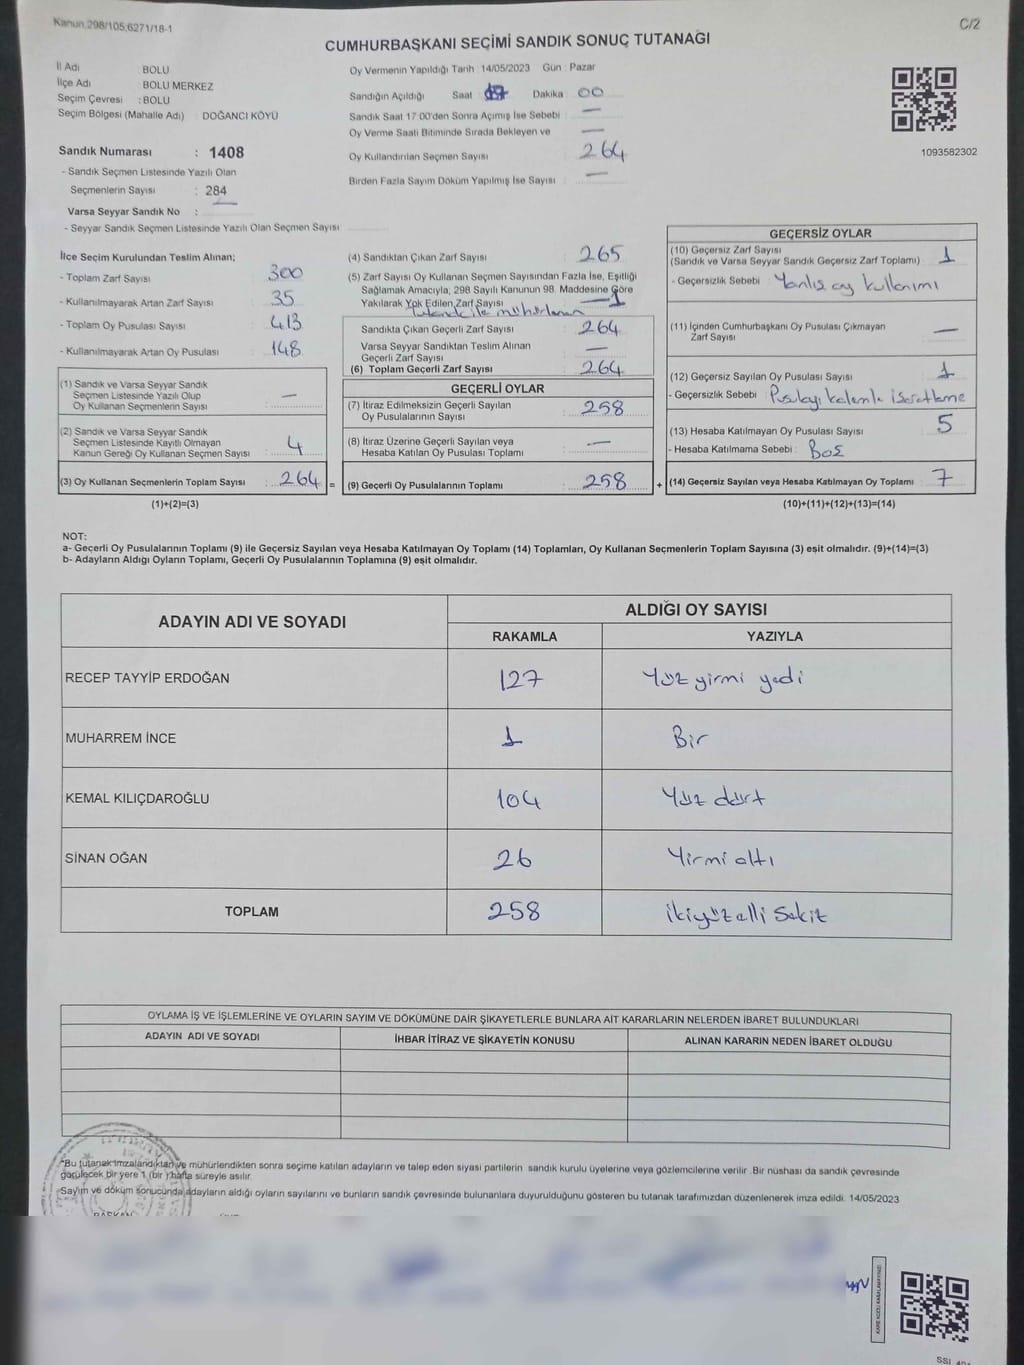 Kanun 298/105;6271/18-1
C/2
CUMHURBAŞKANI SEÇİMİ SANDIK SONUÇ TUTANAĞI
İl Adı BOLU
İlçe Adı BOLU MERKEZ
Seçim Çevresi : BOLU
Seçim Bölgesi (Mahalle Adı) : DOĞANCI KÖYÜ
Sandık Numarası : 1408
- Sandık Seçmen Listesinde Yazılı Olan
Seçmenlerin Sayısı : 284
Varsa Seyyar Sandık No : —
- Seyyar Sandık Seçmen Listesinde Yazılı Olan Seçmen Sayısı
Oy Vermenin Yapıldığı Tarih :14/05/2023 Gün : Pazar
Sandığın Açıldığı Saat Dakika 00
Sandık Saat 17:00'den Sonra Açımış İse Sebebi : —
Oy Verme Saati Bitiminde Sırada Bekleyen ve —
Oy Kullandırılan Seçmen Sayısı : 264
Birden Fazla Sayım Döküm Yapılmış İse Sayısı : —
1093582302
İlçe Seçim Kurulundan Teslim Alınan;
- Toplam Zarf Sayısı : 300
- Kullanılmayarak Artan Zarf Sayısı : 35
- Toplam Oy Pusulası Sayısı : 413
- Kullanılmayarak Artan Oy Pusulası : 148
(1) Sandık ve Varsa Seyyar Sandık
Seçmen Listesinde Yazılı Olup
Oy Kullanan Seçmenlerin Sayısı : —
(2) Sandık ve Varsa Seyyar Sandık
Seçmen Listesinde Kayıtlı Olmayan
Kanun Gereği Oy Kullanan Seçmen Sayısı : 4
(3) Oy Kullanan Seçmenlerin Toplam Sayısı : 264 =
(1)+(2)=(3)
(4) Sandıktan Çıkan Zarf Sayısı : 265
(5) Zarf Sayısı Oy Kullanan Seçmen Sayısından Fazla İse, Eşitliği
Sağlamak Amacıyla, 298 Sayılı Kanunun 98. Maddesine Göre
Yakılarak Yok Edilen Zarf Sayısı — 1
Sandıkta Çıkan Geçerli Zarf Sayısı : 264
Varsa Seyyar Sandıktan Teslim Alınan
Geçerli Zarf Sayısı : —
(6) Toplam Geçerli Zarf Sayısı : 264
GEÇERLİ OYLAR
(7) İtiraz Edilmeksizin Geçerli Sayılan
Oy Pusulalarının Sayısı : 258
(8) İtiraz Üzerine Geçerli Sayılan veya
Hesaba Katılan Oy Pusulası Toplamı : —
(9) Geçerli Oy Pusulalarının Toplamı : 258 +
GEÇERSİZ OYLAR
(10) Geçersiz Zarf Sayısı
(Sandık ve Varsa Seyyar Sandık Geçersiz Zarf Toplamı) : 1
- Geçersizlik Sebebi : Yanlış oy kullanımı
(11) İçinden Cumhurbaşkanı Oy Pusulası Çıkmayan
Zarf Sayısı : —
(12) Geçersiz Sayılan Oy Pusulası Sayısı : 1
- Geçersizlik Sebebi : Pusulayı kalemle işaretleme
(13) Hesaba Katılmayan Oy Pusulası Sayısı : 5
- Hesaba Katılmama Sebebi : Boş
(14) Geçersiz Sayılan veya Hesaba Katılmayan Oy Toplamı : 7
(10)+(11)+(12)+(13)=(14)
NOT:
a- Geçerli Oy Pusulalarının Toplamı (9) ile Geçersiz Sayılan veya Hesaba Katılmayan Oy Toplamı (14) Toplamları, Oy Kullanan Seçmenlerin Toplam Sayısına (3) eşit olmalıdır. (9)+(14)=(3)
b- Adayların Aldığı Oyların Toplamı, Geçerli Oy Pusulalarının Toplamına (9) eşit olmalıdır.
ADAYIN ADI VE SOYADI
ALDIĞI OY SAYISI
RAKAMLA YAZIYLA
RECEP TAYYİP ERDOĞAN 127 Yüz yirmi yedi
MUHARREM İNCE 1 Bir
KEMAL KILIÇDAROĞLU 104 Yüz dört
SİNAN OĞAN 26 Yirmi altı
TOPLAM 258 ikiyüz elli sekiz
OYLAMA İŞ VE İŞLEMLERİNE VE OYLARIN SAYIM VE DÖKÜMÜNE DAİR ŞİKAYETLERLE BUNLARA AİT KARARLARIN NELERDEN İBARET BULUNDUKLARI
ADAYIN ADI VE SOYADI İHBAR İTİRAZ VE ŞİKAYETİN KONUSU ALINAN KARARIN NEDEN İBARET OLDUĞU
*Bu tutanak imzalandıktan ve mühürlendikten sonra seçime katılan adayların ve talep eden siyasi partilerin sandık kurulu üyelerine veya gözlemcilerine verilir. Bir nüshası da sandık çevresinde
görülecek bir yere 1 (bir) hafta süreyle asılır.
Sayım ve döküm sonucunda adayların aldığı oyların sayılarını ve bunların sandık çevresinde bulunanlara duyurulduğunu gösteren bu tutanak tarafımızdan düzenlenerek imza edildi. 14/05/2023
BAŞKAN